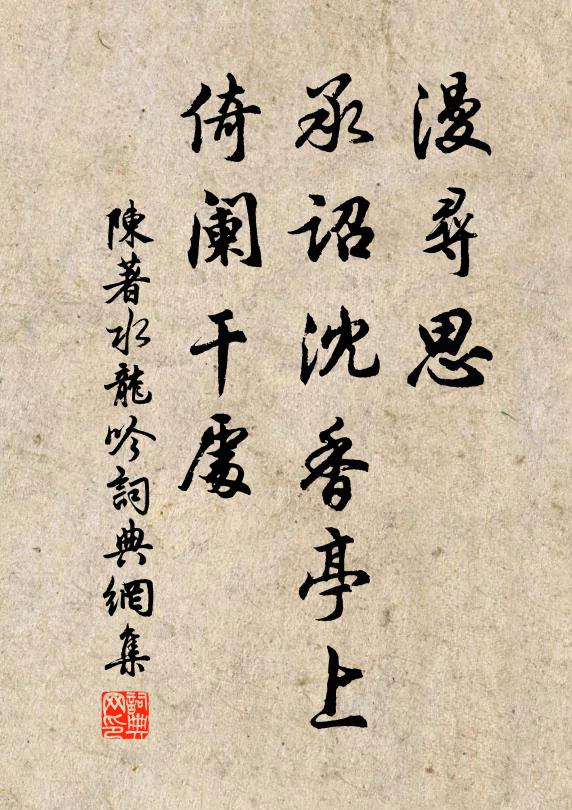 漫尋思
承詔沈香亭上
倚闌干處
陳著水龍吟詞典網集
詞典网印